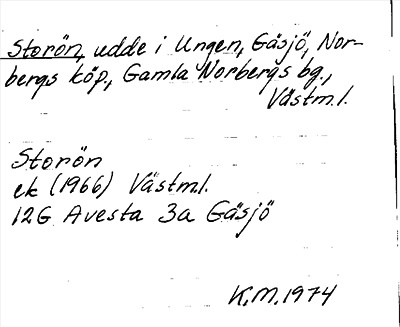 Storön, udde i Ungen, Gåsjö, Nor-
bergs köp., Gamla Norbergs bg.,
Västm.l.
Storön
ek (1966) Västm.l.
12G Avesta 3a Gåsjö
K.M.1974